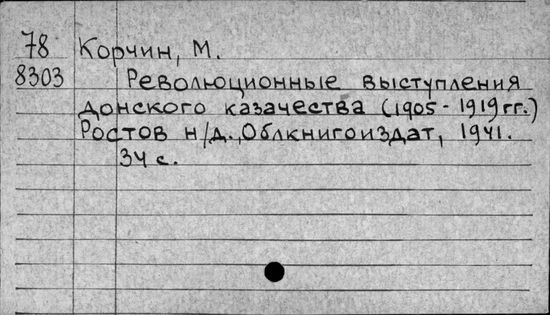 78 Корчин, М.
8303 Революционные выступления
донского казачества (1905-1919 гг.)
Ростов н/д., Облкнигоиздат, 1941.
34 с.